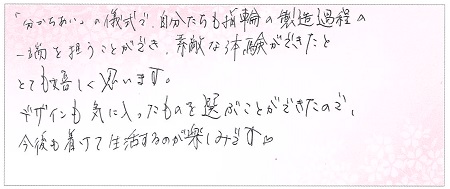 「分かちあい」の儀式で、自分たちも指輪の製造過程の
一端を担うことができ、素敵な体験ができたと
とても嬉しく思います。
デザインも気に入ったものを選ぶことができたので、
今後も着けて生活するのが楽しみです。